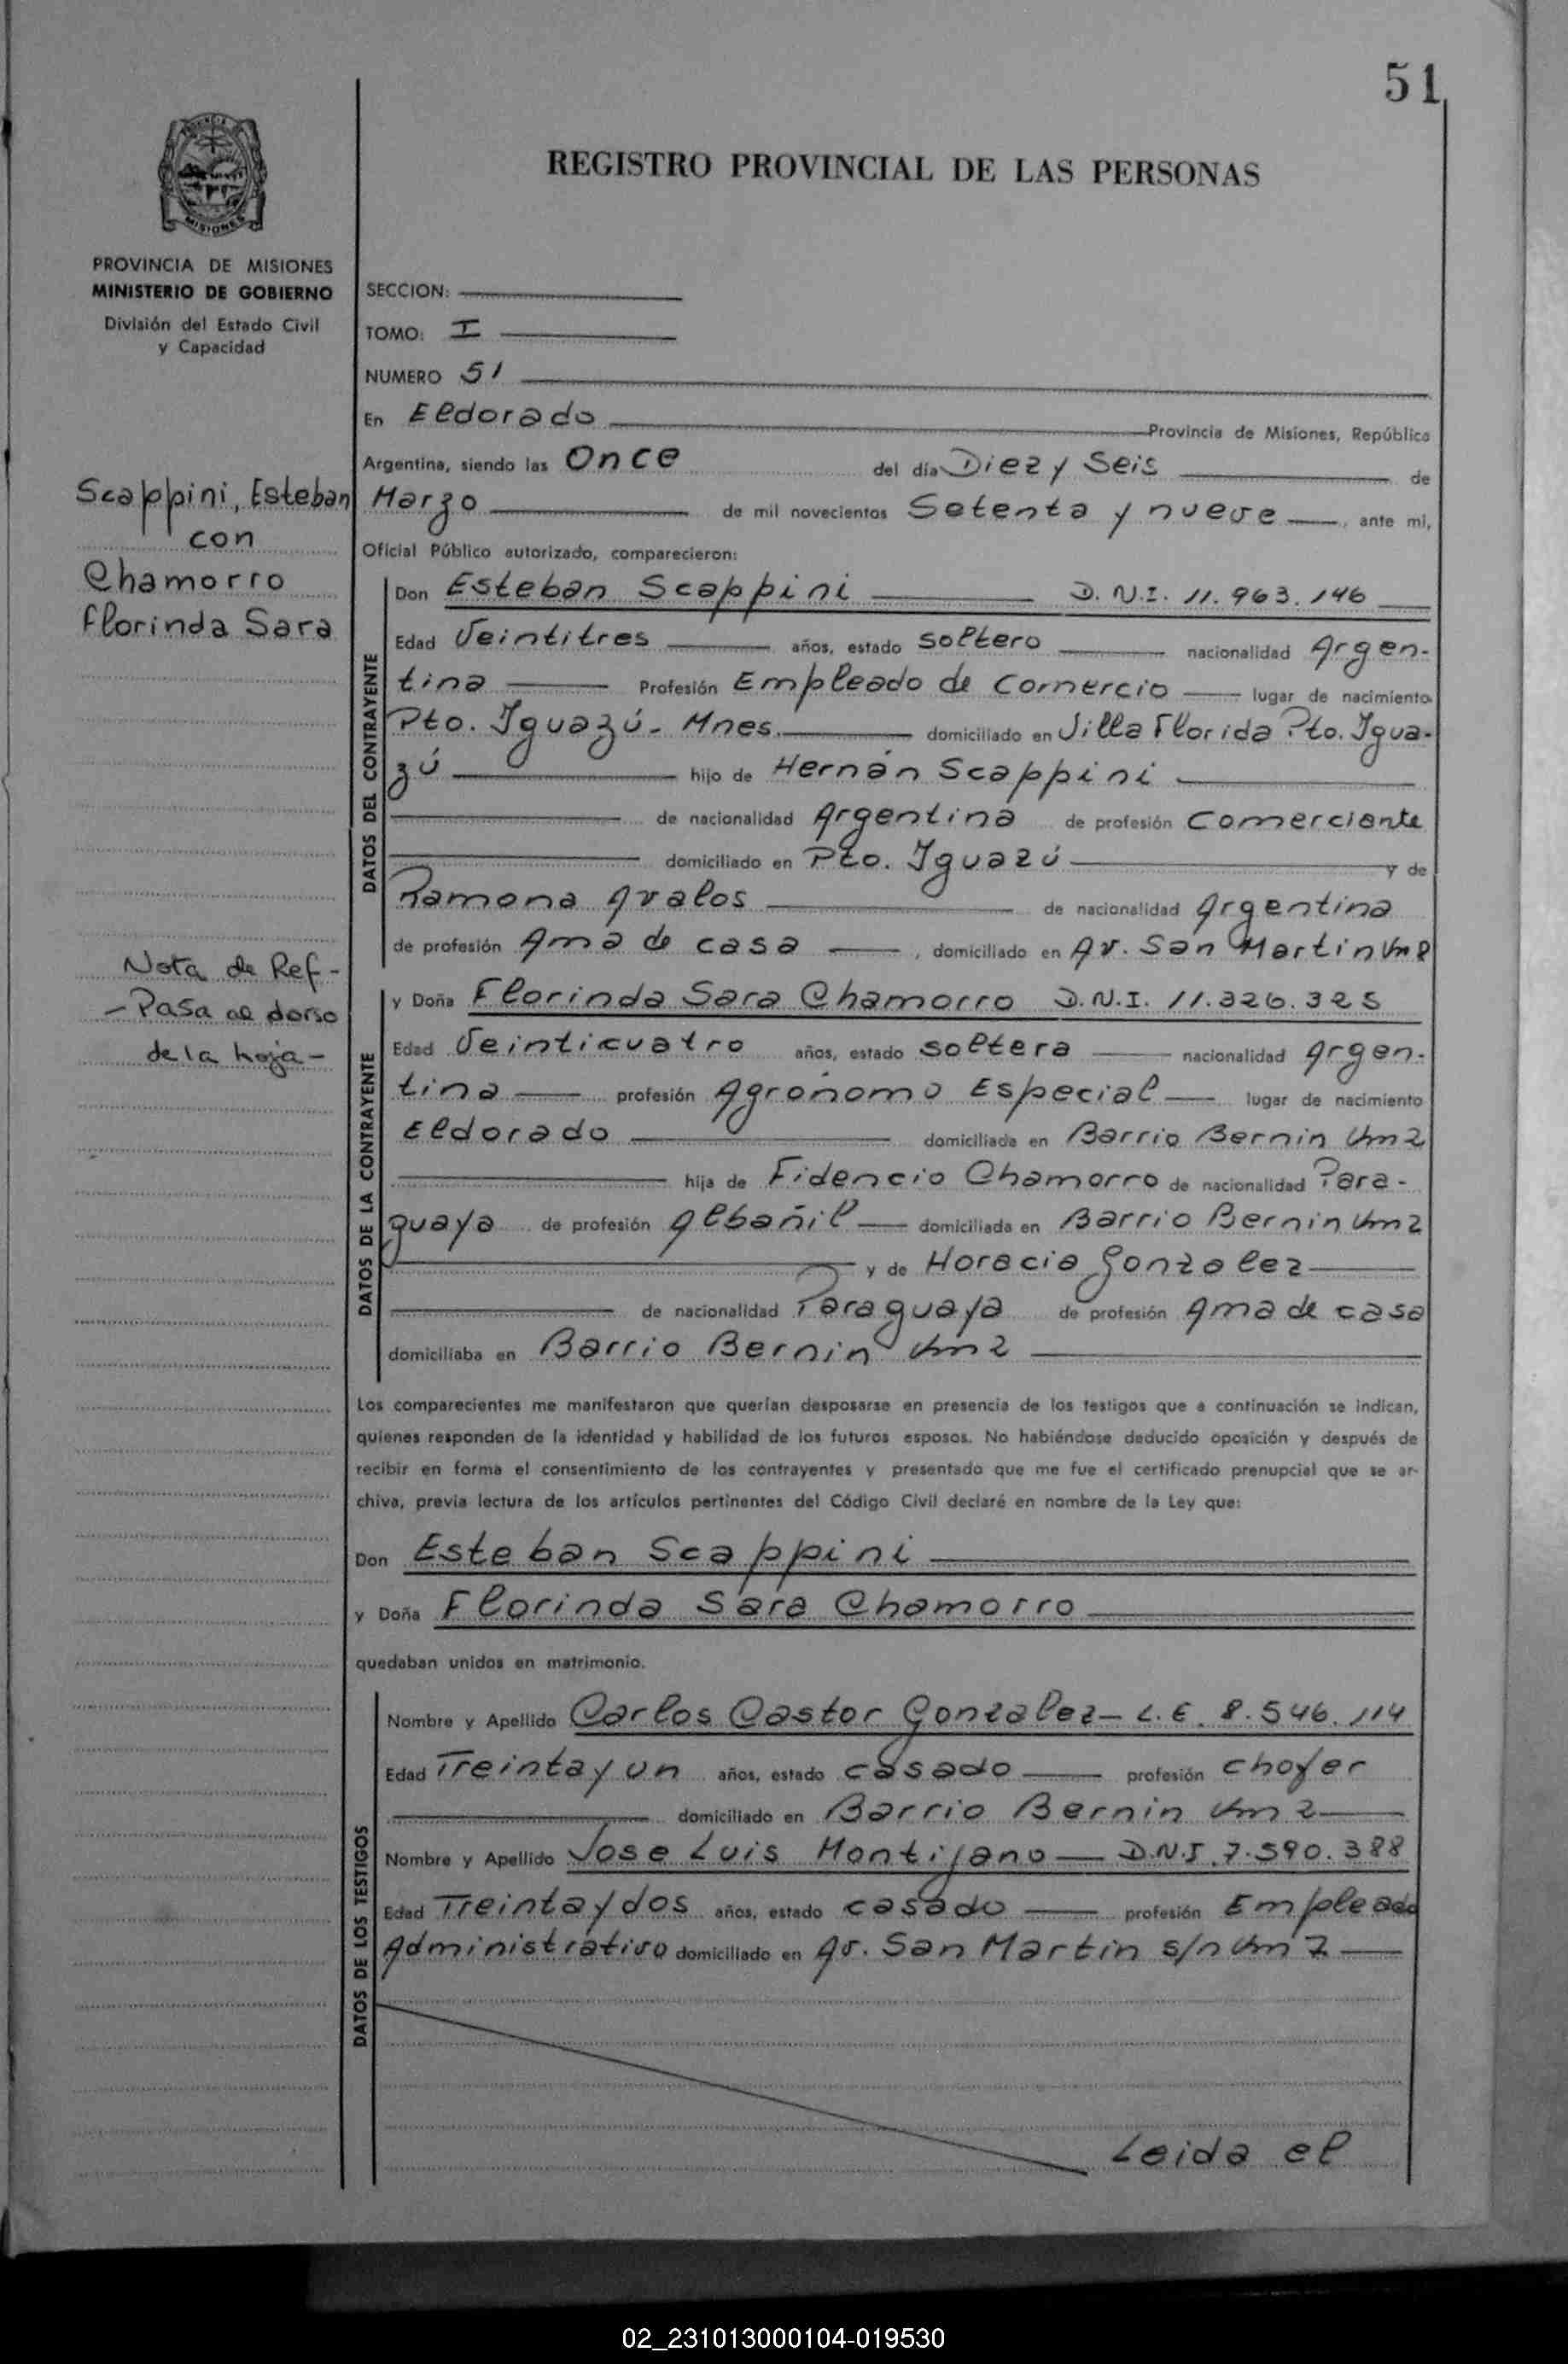 51
REGISTRO PROVINCIAL DE LAS PERSONAS
PROVINCIA DE MISIONES
MINISTERIO DE GOBIERNO
División del Estado Civil
y Capacidad
SECCION:
TOMO: I
NUMERO 51
En Eldorado Provincia de Misiones, República
Argentina, siendo las Once del día Diez y Seis de
Marzo de mil novecientos Setenta y nueve, ante mi,
Oficial Público autorizado, comparecieron:
Scappini, Esteban
con
Chamorro
Florinda Sara
Nota de Ref-
- Pasa al dorso
de la hoja -
DATOS DEL CONTRAYENTE
Don Esteban Scappini D.N.I. 11.963.146
Edad Veintitres años, estado soltero nacionalidad Argen-
tina Profesión Empleado de Comercio lugar de nacimiento
Pto. Iguazú - Mnes. domiciliado en Villa Florida Pto. Igua-
zú hijo de Hernán Scappini
de nacionalidad Argentina de profesión Comerciante
domiciliado en Pto. Iguazú y de
Ramona Avalos de nacionalidad Argentina
de profesión Ama de casa, domiciliado en Av. San Martin Km 8
DATOS DE LA CONTRAYENTE
y Doña Florinda Sara Chamorro D.N.I. 11.326.325
Edad Veinticuatro años, estado soltera nacionalidad Argen-
tina profesión Agronomo Especial lugar de nacimiento
Eldorado domiciliada en Barrio Bernin Km 2
hija de Fidencio Chamorro de nacionalidad Para-
guaya de profesión Albañil domiciliada en Barrio Bernin Km 2
y de Horacia Gonzalez
de nacionalidad Paraguaya de profesión Ama de casa
domiciliaba en Barrio Bernin Km 2
Los comparecientes me manifestaron que querían desposarse en presencia de los testigos que a continuación se indican,
quienes responden de la identidad y habilidad de los futuros esposos. No habiéndose deducido oposición y después de
recibir en forma el consentimiento de los contrayentes y presentado que me fue el certificado prenupcial que se ar-
chiva, previa lectura de los artículos pertinentes del Código Civil declaré en nombre de la Ley que:
Don Esteban Scappini
y Doña Florinda Sara Chamorro
quedaban unidos en matrimonio.
DATOS DE LOS TESTIGOS
Nombre y Apellido Carlos Castor Gonzalez - L.E. 8.546.114
Edad Treinta y un años, estado casado profesión chofer
domiciliado en Barrio Bernin Km 2
Nombre y Apellido Jose Luis Montijano - D.N.I. 7.590.388
Edad Treinta y dos años, estado casado profesión Empleado
Administrativo domiciliado en Av. San Martin s/n Km 2
Leida el
02_231013000104-019530